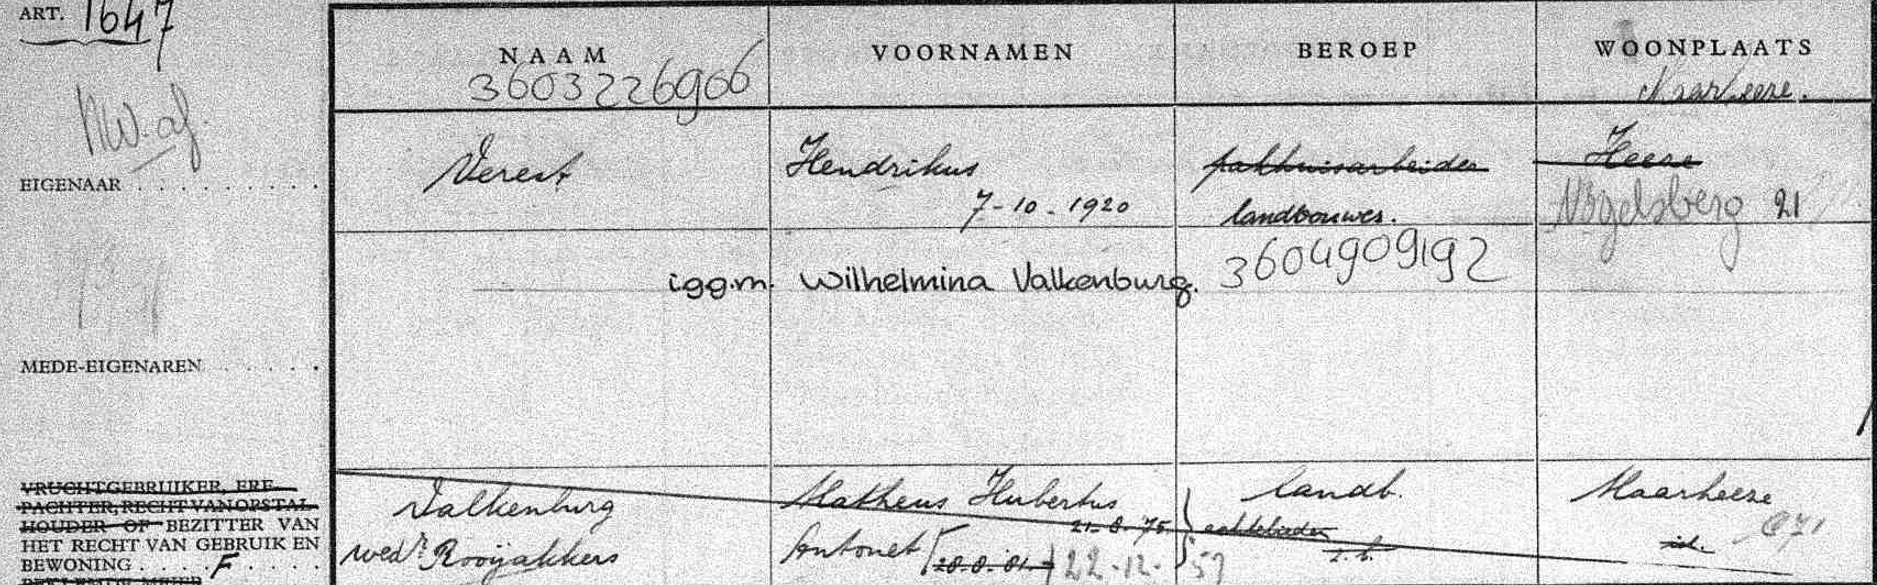 ART. 1647
NAAM VOORNAMEN BEROEP WOONPLAATS
3603226906 Maarheeze.
NW. af.
Verest Hendrikus pakhuisarbeider Heeze
EIGENAAR
7-10-1920 landbouwer. Vogelsberg 21
i.g.g.m. Wilhelmina Valkenburg. 3604909192
MEDE-EIGENAREN
VRUCHTGEBRUIKER, ERF-
PACHTER, RECHT VAN OPSTAL-
HOUDER OF BEZITTER VAN
HET RECHT VAN GEBRUIK EN
BEWONING F
BEKLEMDE MEIER
Valkenburg Matheus Hubertus landb. Maarheeze
21-8-75
wedr Rooijakkers Antonet 20-8-81 22-12-59 z.b. id.